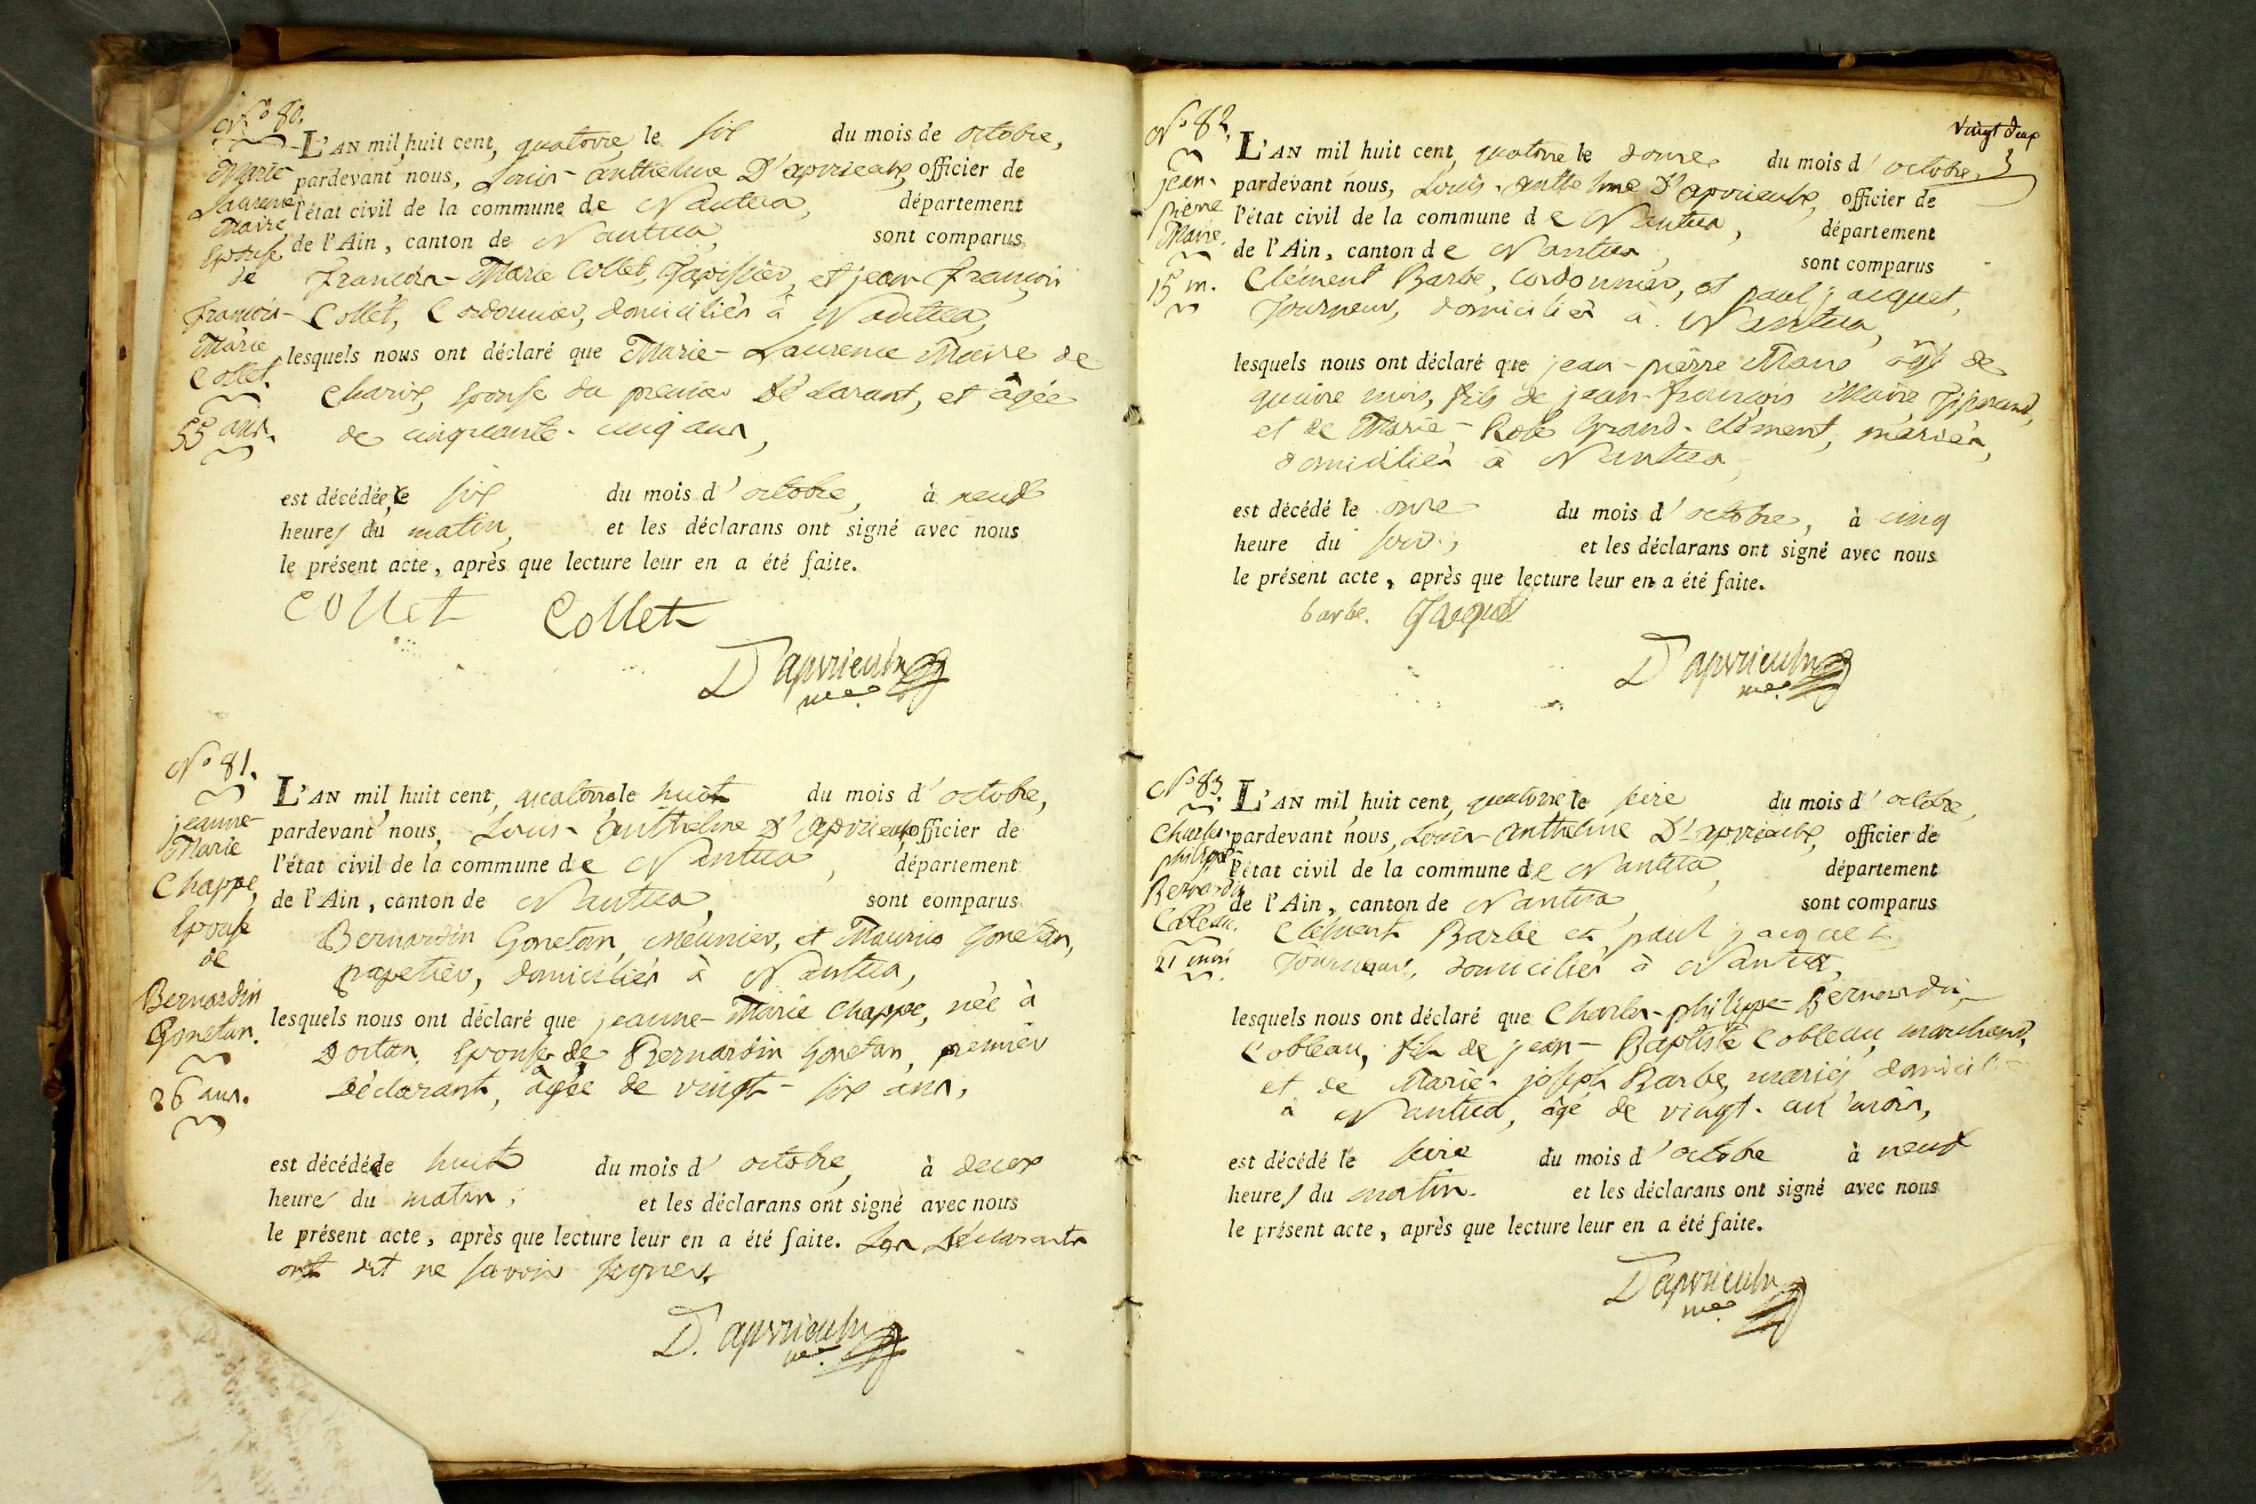 N.° 80.
Marie
Laurence
Maire
Epouse
de
françois-
Marie
Collet.
55 ans.
L'AN mil huit cent, quatorze le six du mois de octobre,
pardevant nous, Louis-Anthelme D'apvrieulx, officier de
l'état civil de la commune de Nantua, département
de l'Ain, canton de Nantua, sont comparus
françois-Marie Collet, Tapissier, et jean françois
Collet, Cordonnier, domiciliés à Nantua,
lesquels nous ont déclaré que Marie-Laurence Maire de
Charix, épouse du premier Déclarant, et âgée
de cinquante-cinq ans,
est décédée, le six du mois d'octobre, à neuf
heures du matin, et les déclarans ont signé avec nous
le présent acte, après que lecture leur en a été faite.
Collet Collet
D'apvrieulx
N.° 81.
jeanne-
Marie
Chappe,
Epouse
de
Bernardin
Gonetan.
26 ans.
L'AN mil huit cent, quatorze le huit du mois d'octobre,
pardevant nous, Louis-Anthelme D'apvrieulx, officier de
l'état civil de la commune de Nantua, département
de l'Ain, canton de Nantua, sont comparus
Bernardin Gonetan, meunier, et Maurice Gonetan,
papetier, domiciliés à Nantua,
lesquels nous ont déclaré que jeanne-Marie Chappe, née à
Dortan, épouse de Bernardin Gonetan, premier
Déclarant, âgée de vingt-six ans,
est décédée le huit du mois d'octobre, à deux
heures du matin, et les déclarans ont signé avec nous
le présent acte, après que lecture leur en a été faite. Les Déclarants
ont dit ne savoir signer.
D'apvrieulx
vingt deux
N.° 82.
jean-
pierre
Maire.
15 m.
L'AN mil huit cent, quatorze le douze du mois d'octobre,
pardevant nous, Louis-Anthelme D'apvrieulx, officier de
l'état civil de la commune de Nantua, département
de l'Ain, canton de Nantua, sont comparus
Clément Barbe, Cordonnier, et paul jacquet,
Tourneur, domiciliés à Nantua,
lesquels nous ont déclaré que jean-pierre Maire âgé de
quinze mois, fils de jean-françois Maire Tisserand,
et de Marie-Rose Grand-clément, mariés,
domiciliés à Nantua,
est décédé le onze du mois d'octobre, à cinq
heure du soir, et les déclarans ont signé avec nous
le présent acte, après que lecture leur en a été faite.
barbe. Jacquet
D'apvrieulx
N.° 83.
Charles-
philippe-
Bernardin
Cobleau.
21 mois
L'AN mil huit cent, quatorze le seize du mois d'octobre,
pardevant nous, Louis-Anthelme D'apvrieulx, officier de
l'état civil de la commune de Nantua, département
de l'Ain, canton de Nantua, sont comparus
Clément Barbe et paul jacquet
Tourneur, domiciliés à Nantua,
lesquels nous ont déclaré que Charles-philippe-Bernardin
Cobleau, fils de jean-Baptiste Cobleau, marchand,
et de Marie-joseph Barbe, mariés domiciliés
à Nantua, âgé de vingt-un mois,
est décédé le seize du mois d'octobre à neuf
heures du matin. et les déclarans ont signé avec nous
le présent acte, après que lecture leur en a été faite.
D'apvrieulx